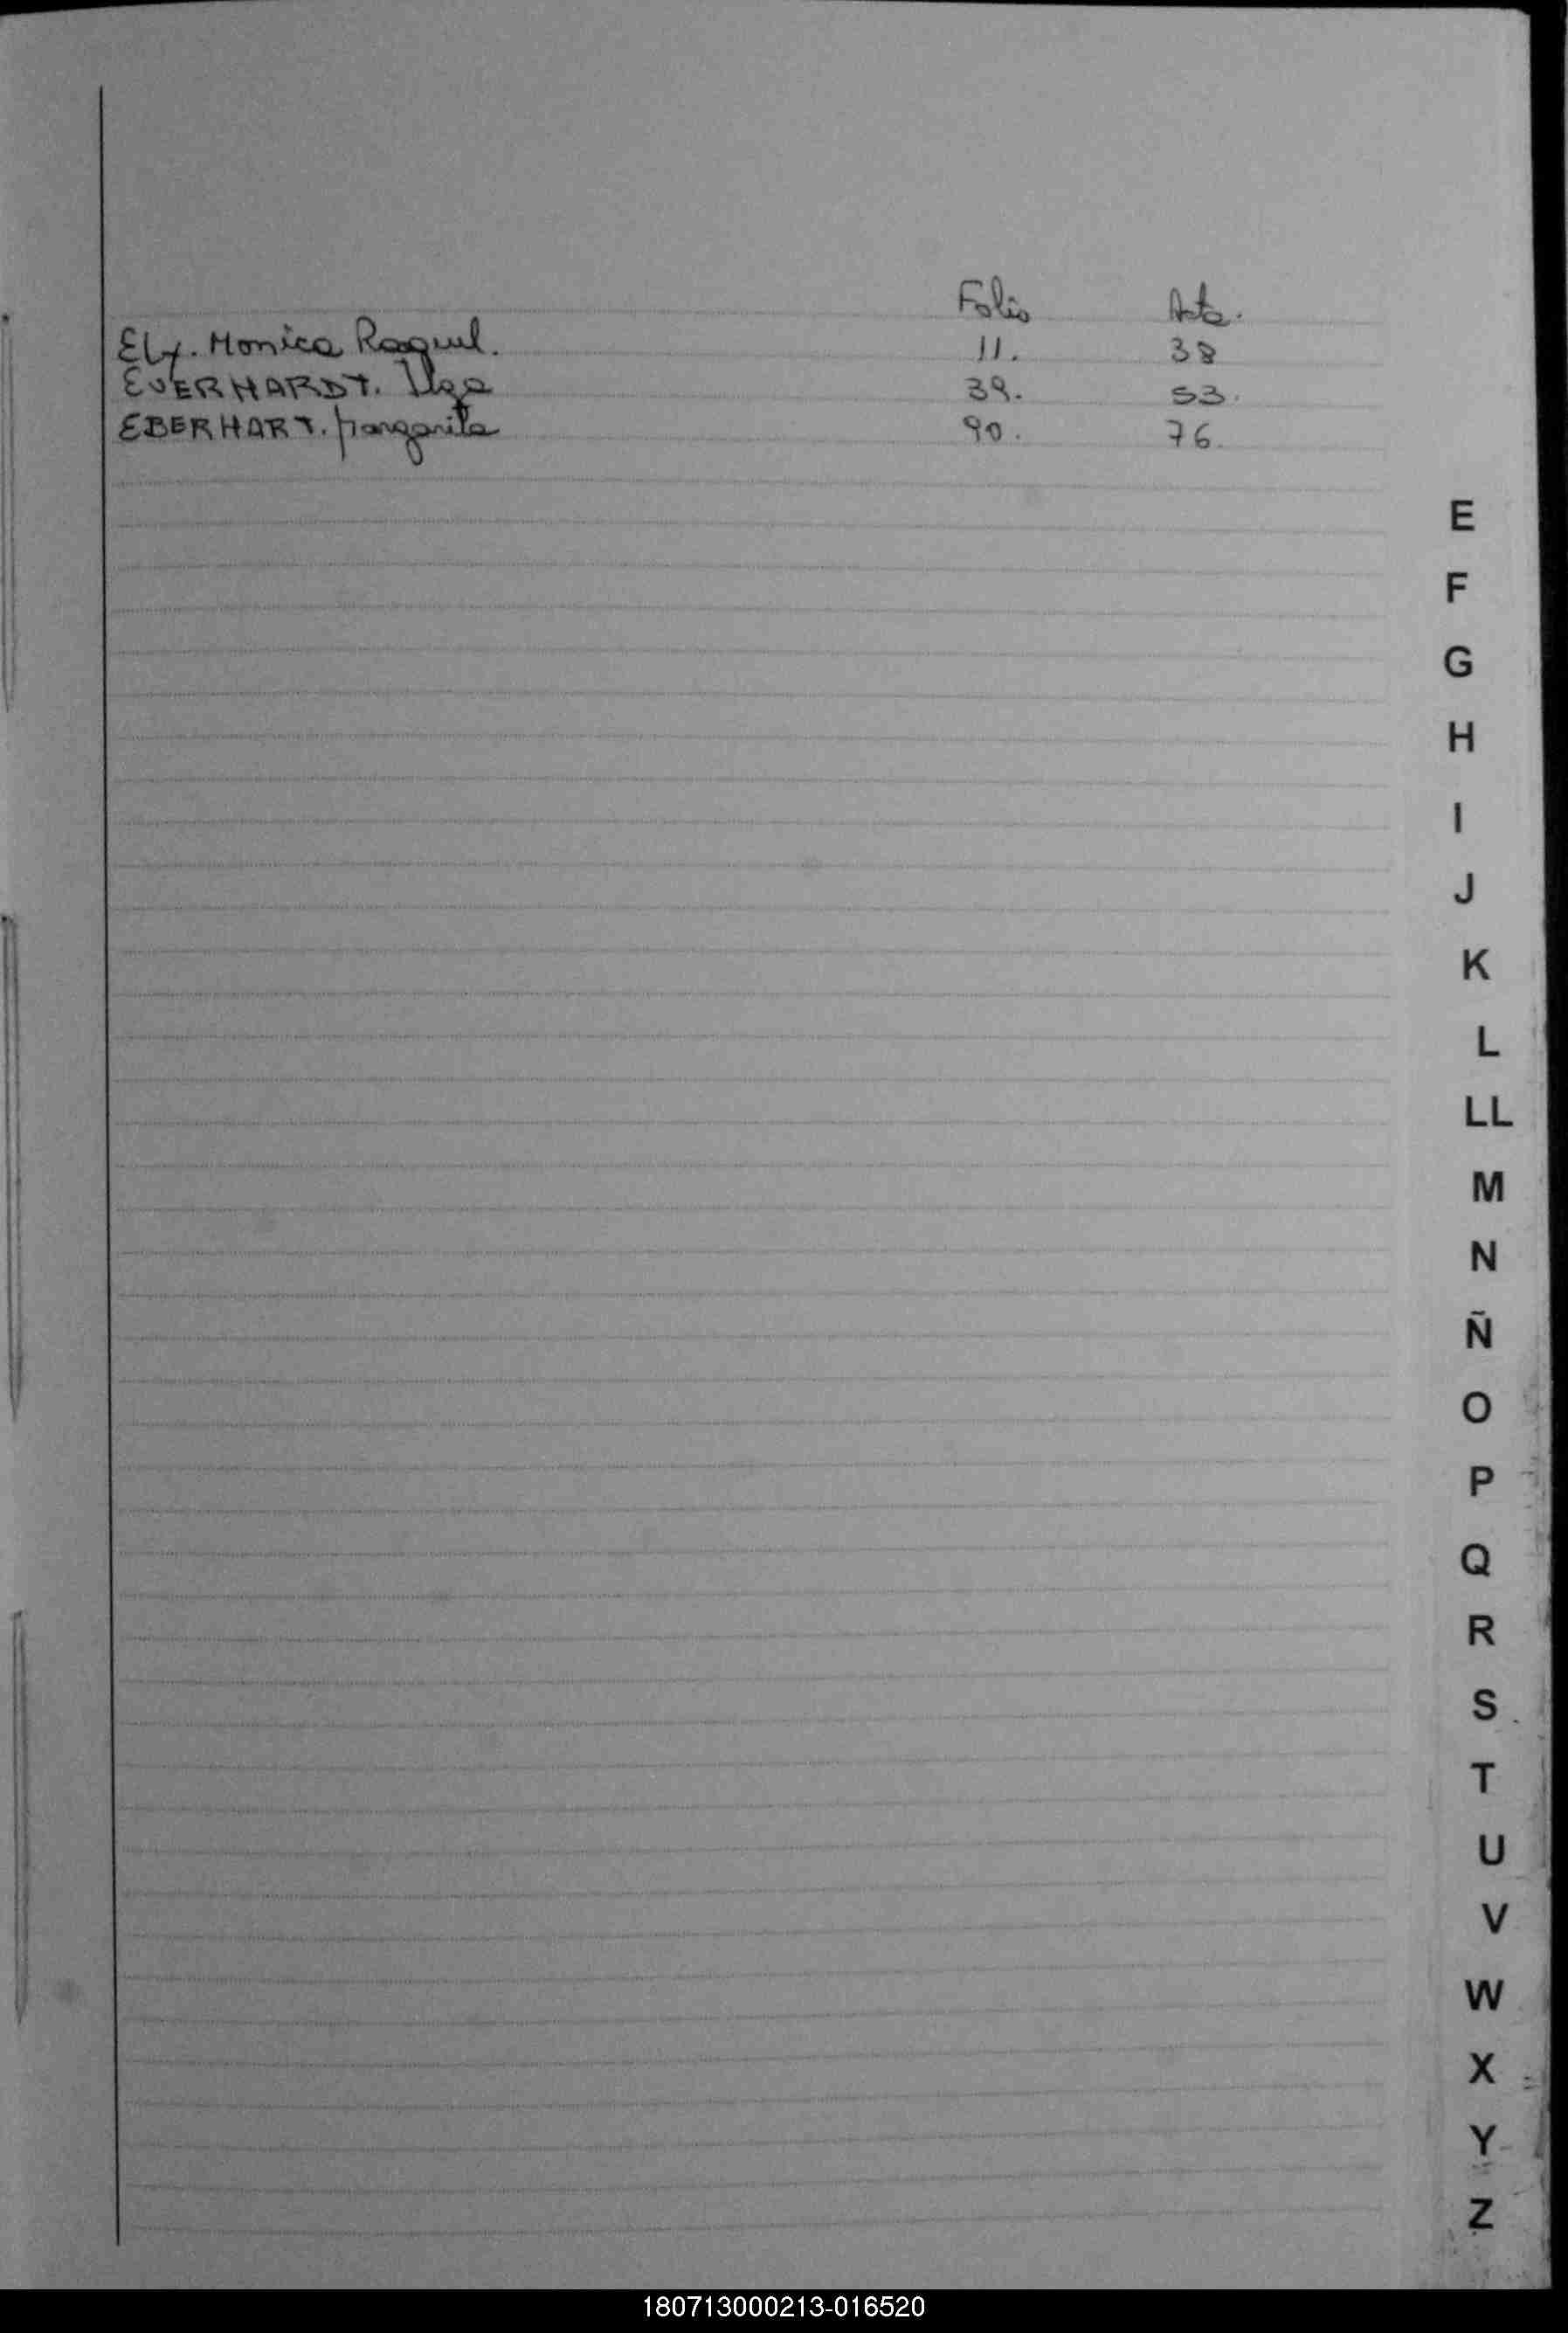 Folio Acta.
Ely. Monica Raquel. 11. 38
EVERHARDT. Ilga 39. 53.
EBERHART. Margarita 90. 76.
E
F
G
H
I
J
K
L
LL
M
N
Ñ
O
P
Q
R
S
T
U
V
W
X
Y
Z
180713000213-016520